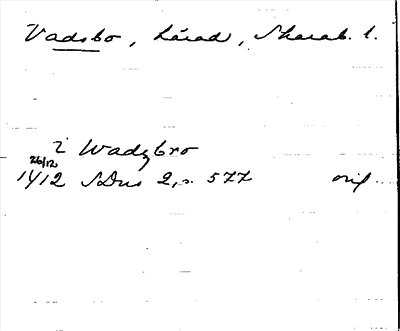 Vadsbo, härad, Skarab. l.
i Wadzbro
26/12
1412 SDns 2, s. 577 orig.